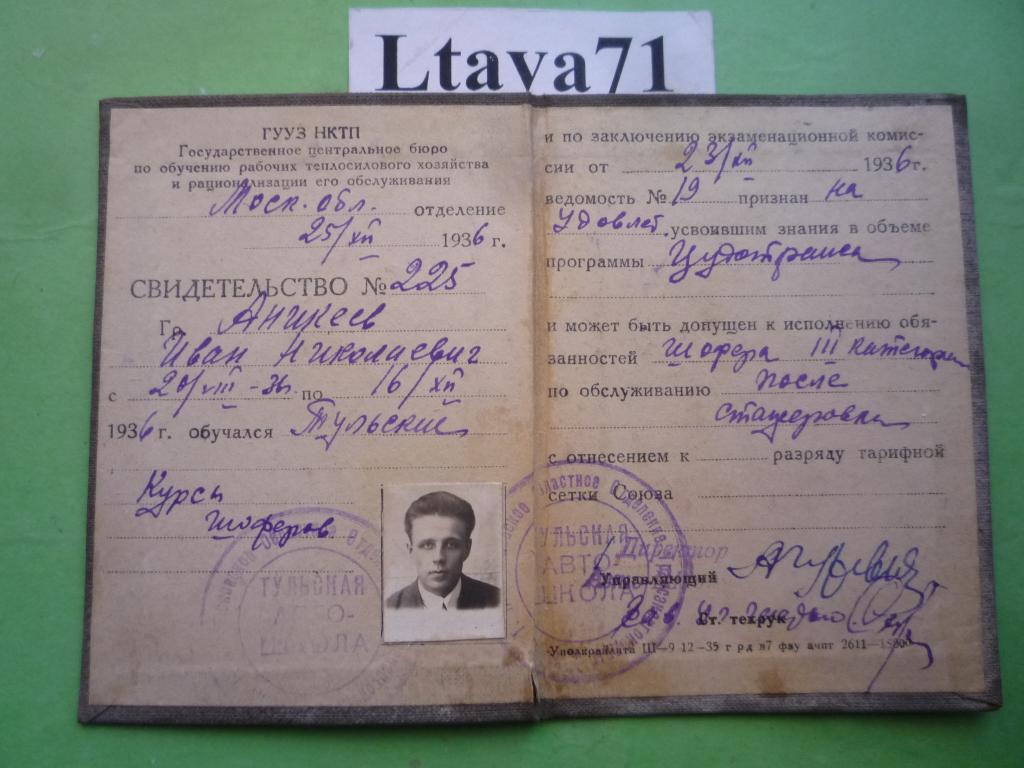 Ltava71
ГУУЗ НКТП
Государственное центральное бюро
по обучению рабочих теплосилового хозяйства
и рационализации его обслуживания
Моск. обл. отделение
25/XII 1936 г.
СВИДЕТЕЛЬСТВО № 225
Гр. Аникеев
Иван Николаевич
с 20/VIII-36 по 16/XII
1936 г. обучался Тульский
Курсы
шоферов
ТУЛЬСКАЯ
АВТО-
ШКОЛА
и по заключению экзаменационной комис-
сии от 23/XII 1936 г.
ведомость № 19 признан на
Удовлет. усвоившим знания в объеме
программы Цудотранса
и может быть допущен к исполнению обя-
занностей шофера III категории
по обслуживанию после
стажировки
с отнесением к разряду тарифной
сетки Союза
ТУЛЬСКАЯ
АВТО-
ШКОЛА
Директор
Управляющий
Зав. Ст. техрук